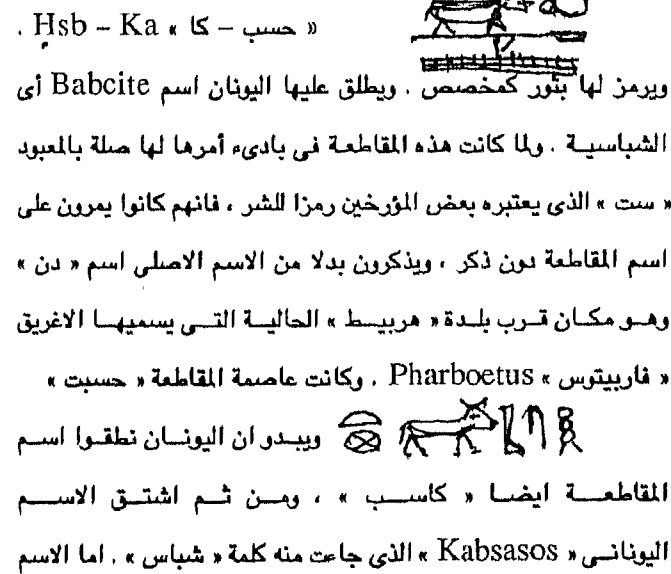 « حسب – كا » Ḥsb – Ka .
ويرمز لها بثور كمخصص . ويطلق عليها اليونان اسم Babcite أى
الشباسية . ولما كانت هذه المقاطعة فى بادىء أمرها لها صلة بالمعبود
« ست » الذى يعتبره بعض المؤرخين رمزا للشر ، فانهم كانوا يمرون على
اسم المقاطعة دون ذكر ، ويذكرون بدلا من الاسم الاصلى اسم « دن »
وهو مكان قرب بلدة « هربيط » الحالية التى يسميها الاغريق
« فاربيتوس » Pharboetus . وكانت عاصمة المقاطعة « حسبت »
ويبدو ان اليونان نطقوا اسم
المقاطعة ايضا « كاسب » ، ومن ثم اشتق الاسم
اليونانى « Kabsasos » الذى جاءت منه كلمة « شباس » . اما الاسم